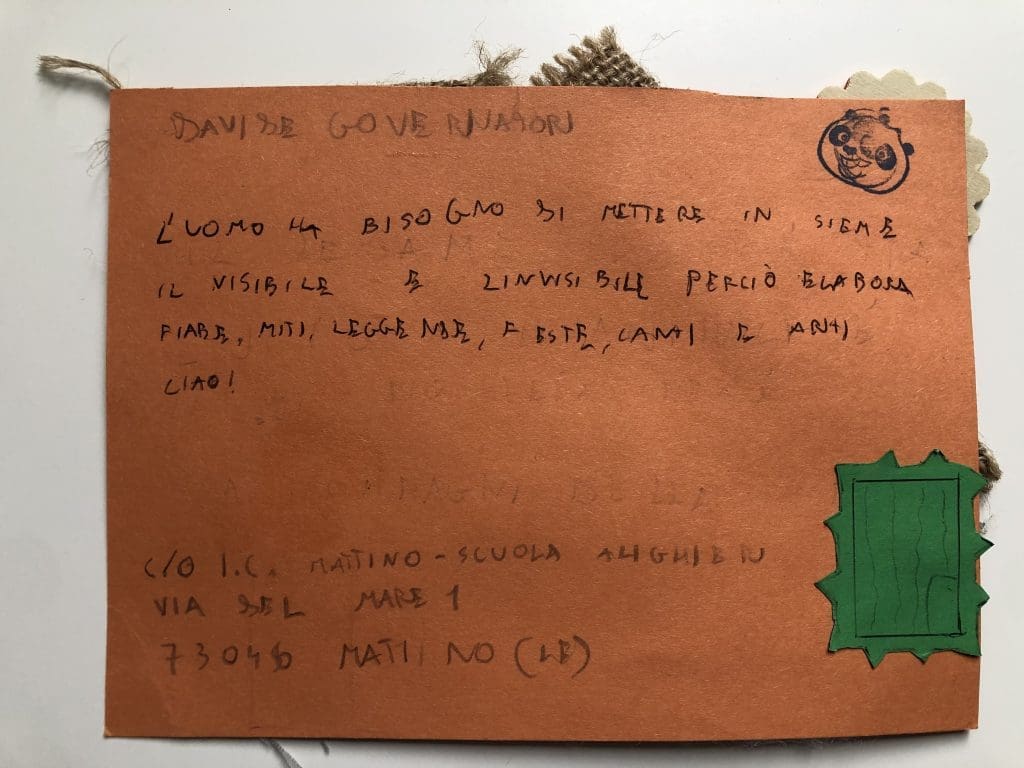 DAVIDE GOVERNATORI
L'UOMO HA BISOGNO DI METTERE IN SIEME
IL VISIBILE E LINVISIBILE PERCIÒ ELABORA
FIABE, MITI, LEGGENDE, FESTE, CANTI E ARTI
CIAO!
C/O I.C. MATTINO-SCUOLA ALIGHIERI
VIA DEL MARE 1
73046 MATTINO (LE)